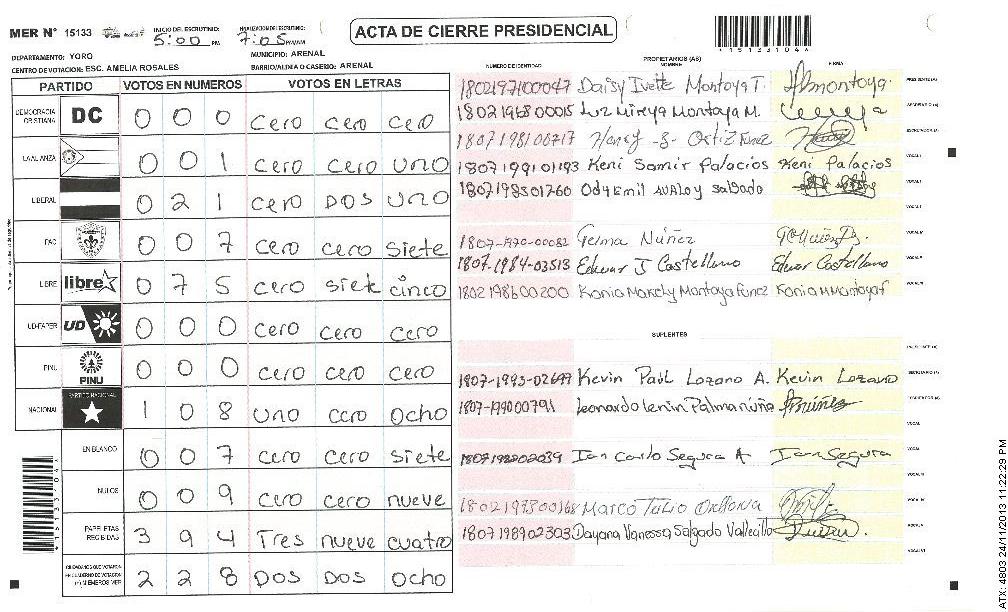 MER N° 15133 INICIO DEL ESCRUTINIO: 5:00 PM FINALIZACION DEL ESCRUTINIO: 7:05 PM/AM ACTA DE CIERRE PRESIDENCIAL
*151330 4*
DEPARTAMENTO: YORO MUNICIPIO: ARENAL
CENTRO DE VOTACION: ESC. AMELIA ROSALES BARRIO/ALDEA O CASERIO: ARENAL
PARTIDO VOTOS EN NUMEROS VOTOS EN LETRAS
DEMOCRACIA CRISTIANA DC 0 0 0 cero cero cero
LA ALIANZA 0 0 1 cero cero uno
LIBERAL 0 2 1 cero DOS uno
PAC 0 0 7 cero cero siete
LIBRE libre 0 7 5 cero siete cinco
UD-FAPER UD 0 0 0 cero cero cero
PINU PINU 0 0 0 cero cero cero
NACIONAL PARTIDO NACIONAL 1 0 8 uno cero ocho
EN BLANCO 0 0 7 cero cero siete
NULOS 0 0 9 cero cero nueve
PAPELETAS RECIBIDAS 3 9 4 Tres nueve cuatro
CIUDADANOS QUE VOTARON EN CUADERNO DE VOTACION (+) MIEMBROS MER 2 2 8 DOS DOS ocho
PROPIETARIOS (AS)
NUMERO DE IDENTIDAD NOMBRE FIRMA
1802197100047 Daisy Ivette Montoya T. PRESIDENTE (A)
1802196800015 Luz Mireya Montoya M. SECRETARIO (A)
1807198100717 Henry -S- Ortiz Funez ESCRUTADOR (A)
1807199101193 Keni Samir Palacios Keni Palacios VOCAL I
1807198501760 Odyemil
1807-1970-00082 Telma Núñez
1807-1984-03513 Edwar J Castellano Edwar Castellano
1802198600200 Kania Marely Montoya Funez Kania M Montoya f
SUPLENTES
1807-1993-02699 Kevin Paúl Lozano A. Kevin Lozano SECRETARIO (A)
1807-199000791 Leonardo Lenin Palma núñez
1807198202039 Ian Carlo Segura A Ian Segura
1802197300168 Marco Tulio
1807198902303 Dayana Vanessa Salgado Vallecillo
ATX: 4803 24/11/2013 11:22:29 PM